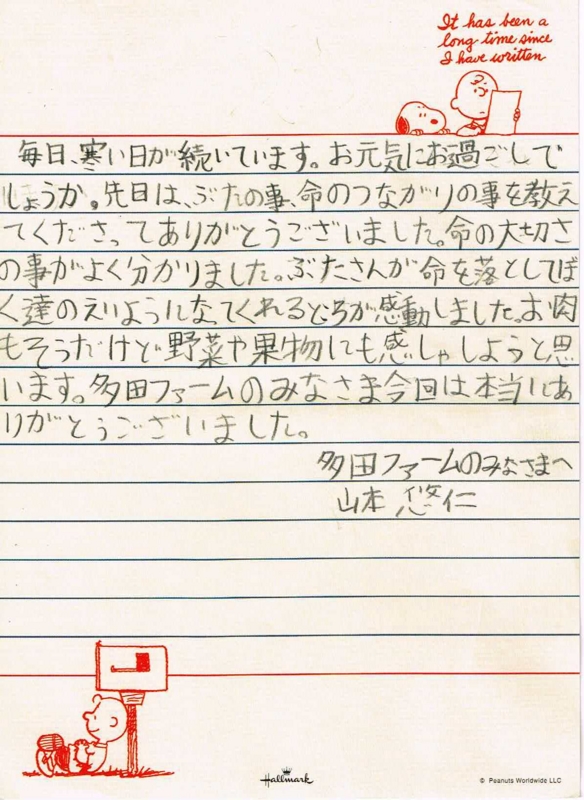 It has been a
long time since
I have written
毎日、寒い日が続いています。お元気にお過ごしで
しょうか。先日は、ぶたの事、命のつながりの事を教え
てくださってありがとうございました。命の大切さ
の事がよく分かりました。ぶたさんが命を落としてぼ
く達のえいようになってくれるところが感動しました。お肉
もそうだけど野菜や果物にも感しゃしようと思
います。多田ファームのみなさま今回は本当にあ
りがとうございました。
多田ファームのみなさまへ
山本 悠仁
Hallmark
© Peanuts Worldwide LLC